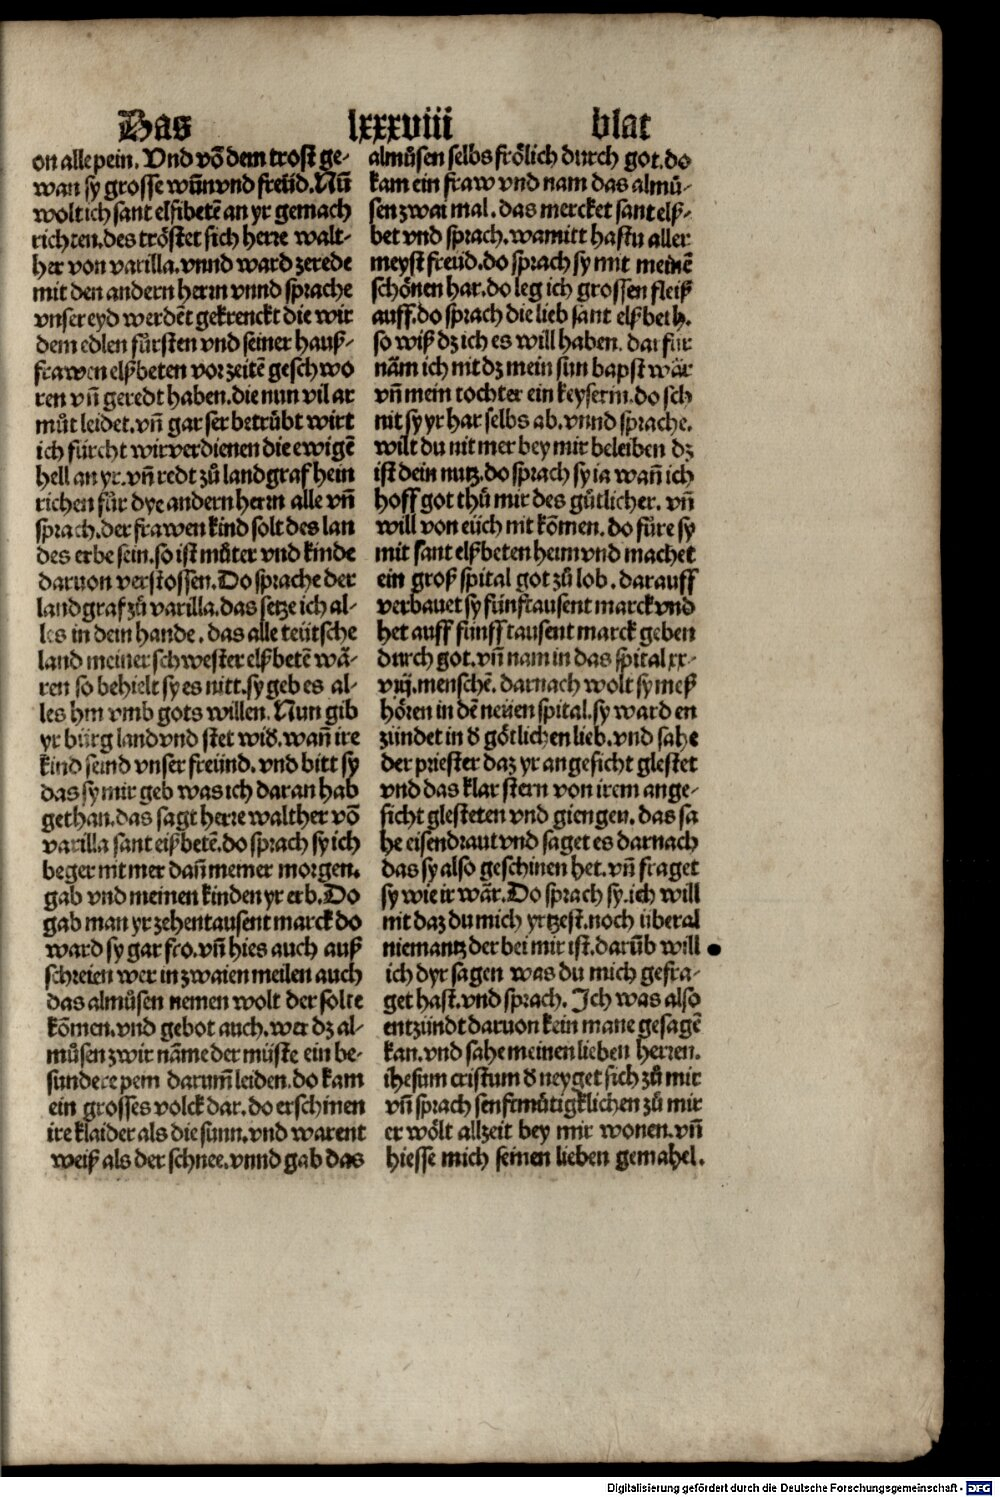 Das lxxxviii blat
on alle pein. Vnd võ dem trost ge-
wan sy grosse wũn vnd freüd. Nũ
wolt ich sant elsibetẽ an yr gemach
richten. des tröstet sich herre walt-
her von varilla. vnnd ward zerede
mit den andern herrn vnnd sprache
vnser eyd werdẽt gekrenckt die wir
dem edlen fürsten vnd seiner hauß-
frawen elßbeten vor zeitẽ geschwo
ren vñ geredt haben. die nun vil ar
můt leidet. vñ gar ser betrübt wirt
ich fürcht wir verdienen die ewigẽ
hell an yr. vñ redt zů landgraf hein
richen für dye andern herrn alle vñ
sprach. der frawen kind solt des lan
des erbe sein. so ist můter vnd kinde
daruon verstossen. Do sprache der
landgraf zů varilla. das setze ich al-
les in dein hande. das alle teütsche
land meiner schwester elßbetẽ wä-
ren so behielt sy es nitt. sy geb es al-
les hin vmb gots willen. Nun gib
yr bürg land vnd stet wiđ. wañ ire
kind seind vnser freünd. vnd bitt sy
das sy mir geb was ich dar an hab
gethan. das sagt herre walther võ
varilla sant elßbetẽ. do sprach sy ich
beger nit mer dañ meiner morgen.
gab vnd meinen kinden yr erb. Do
gab man yr zehentausent marck do
ward sy gar fro. vñ hies auch auß
schreien wer in zwaien meilen auch
das almůsen nemen wolt der solte
kõmen. vnd gebot auch. wer dz al-
můsen zwir nãme der müste ein be-
sundere pein darum̃ leiden. do kam
ein grosses volck dar. do erschinen
ire klaider als die sunn. vnd warent
weiß als der schnee. vnnd gab das
almůsen selbs frölich durch got. do
kam ein fraw vnd nam das almů-
sen zwai mal. das mercket sant elß-
bet vnd sprach. wa mitt hastu aller
meyst freüd. do sprach sy mit meinẽ
schönen har. do leg ich grossen fleiß
auff. do sprach die lieb sant elßbeth.
so wiß dz ich es will haben. dar für
näm ich nit dz mein sun bapst wär
vñ mein tochter ein keyserin. do sch
nit sy yr har selbs ab. vnnd sprache.
wilt du nit mer bey mir beleiben dz
ist dein nutz. do sprach sy ia wañ ich
hoff got thů mir des gütlicher. vñ
will von eüch nit kõmen. do füre sy
mit sant elßbeten heim vnd machet
ein groß spital got zů lob. darauff
verbauet sy fünftausent marck vnd
het auff fünff tausent marck geben
durch got. vñ nam in das spital xx-
viij. menschẽ. darnach wolt sy meß
hören in dẽ neüen spital. sy ward en
zündet in đ götlichen lieb. vnd sahe
der priester daz yr angesicht glestet
vnd das klar stern von irem ange-
sicht glesteten vnd giengen. das sa
he eisendraut vnd saget es darnach
das sy also geschinen het. vñ fraget
sy wie ir wär. Do sprach sy. ich will
nit daz du mich yrtzest. noch überal
niemantz der bei mir ist. darũb will
ich dyr sagen was du mich gefra-
get hast. vnd sprach. Ich was also
entzündt daruon kein mane gesagẽ
kan. vnd sahe meinen lieben herren.
ihesum cristum đ neyget sich zů mir
vñ sprach senftmütigklichen zů mir
er wölt allzeit bey mir wonen. vñ
hiesse mich seinen lieben gemahel.
Digitalisierung gefördert durch die Deutsche Forschungsgemeinschaft - DFG